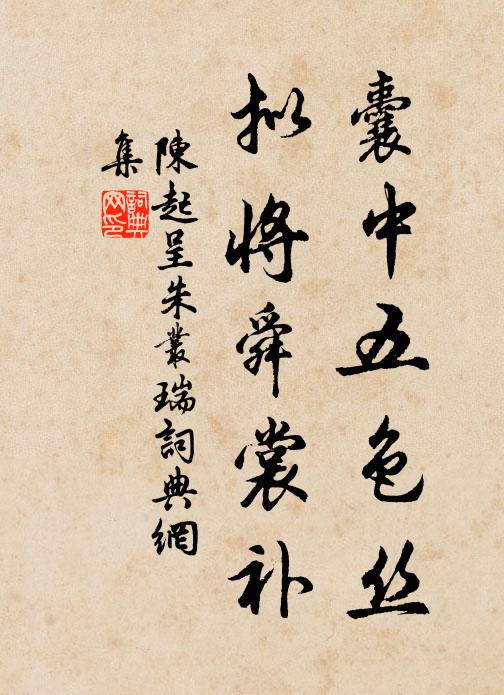 囊中五色丝
拟将舜裳补
陳起呈朱叢瑞詞典網
集
詞典网印